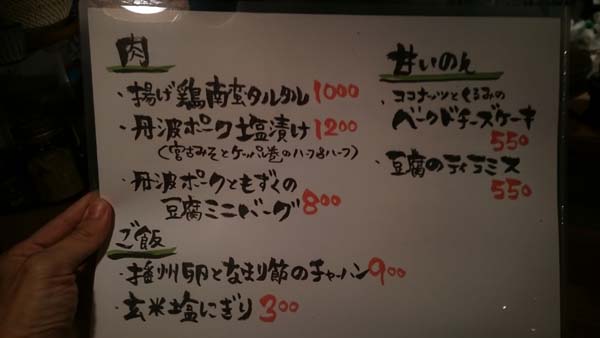 肉
・揚げ鶏南蛮タルタル 1000
・丹波ポーク塩漬け 1200
・丹波ポークともずくの
豆腐ミニバーグ 800
ご飯
・播州卵となまり節のチャーハン 900
・玄米塩にぎり 300
甘いのん
・ココナッツとくるみの
ベークドチーズケーキ
550
・豆腐のティラミス
550